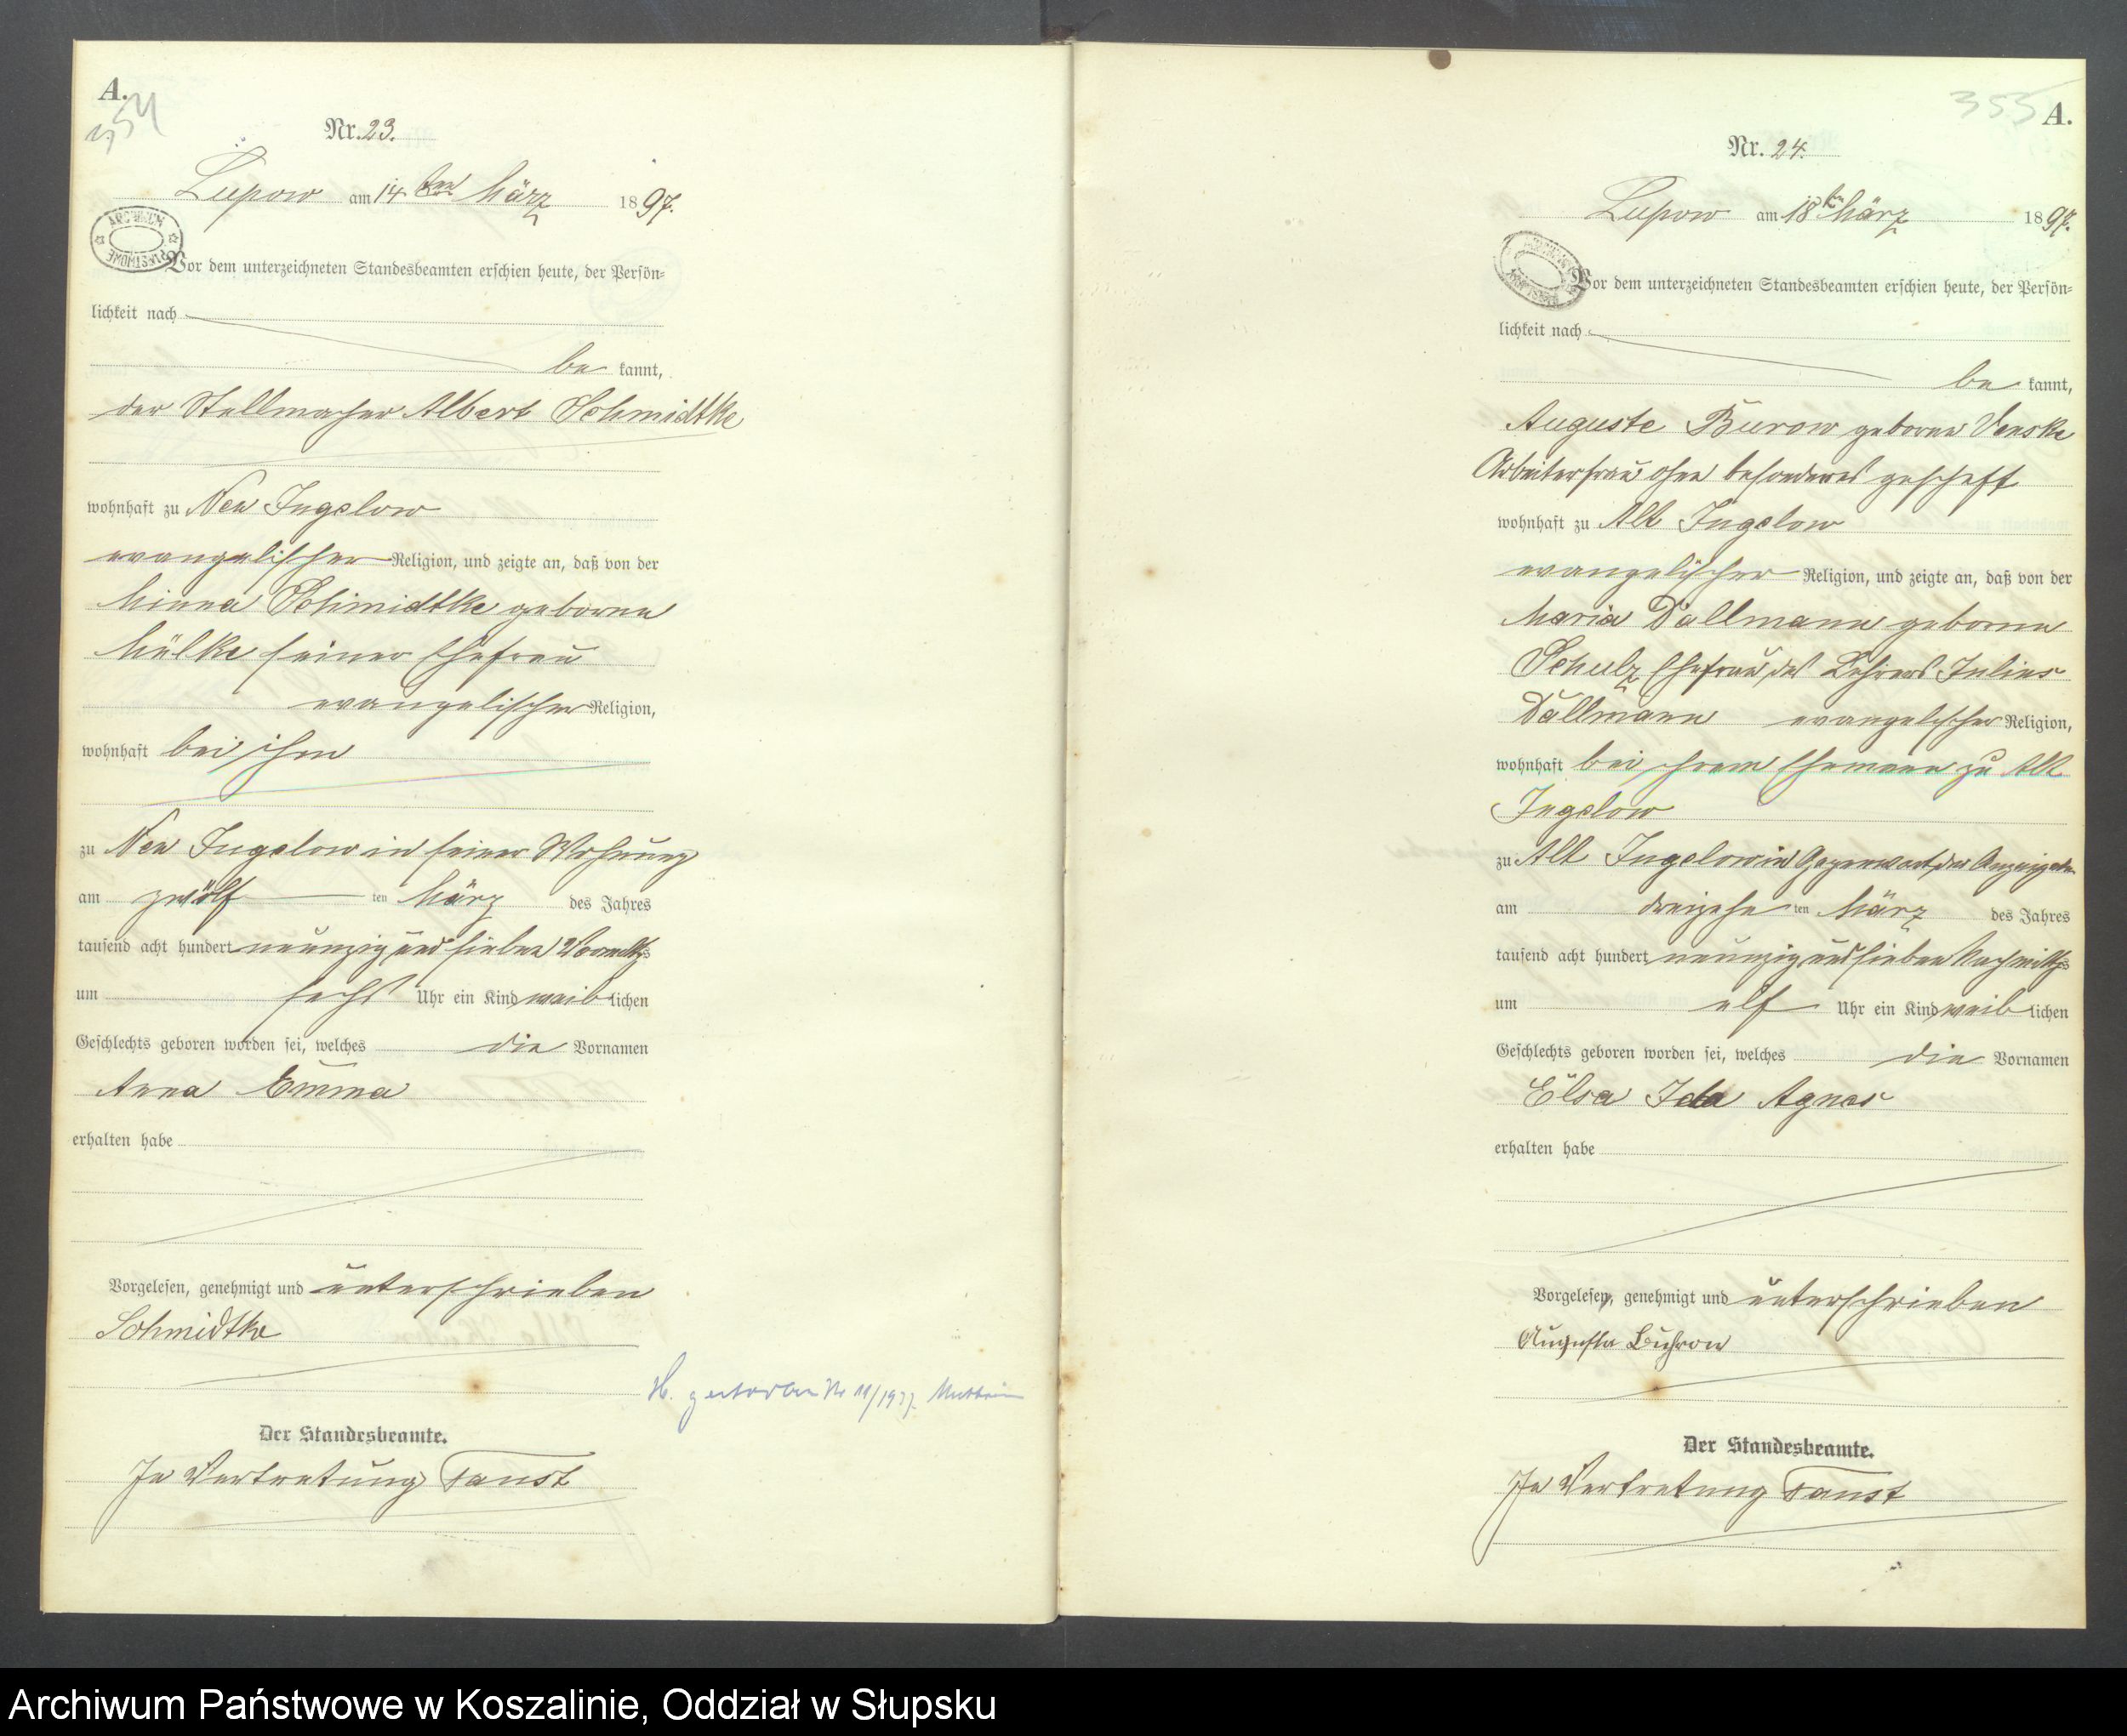 A.
354
Nr. 23.
Lupow am 14ten März 1897.
ARCHIWUM
PAŃSTWOWE
Vor dem unterzeichneten Standesbeamten erschien heute, der Persön=
lichkeit nach
be kannt,
der Stellmacher Albert Schmidtke
wohnhaft zu Neu Jugelow
evangelischer Religion, und zeigte an, daß von der
Minna Schmidtke geborene
Mülke seiner Ehefrau
evangelischer Religion,
wohnhaft bei ihm
zu Neu Jugelow in seiner Wohnung
am zwölf ten März des Jahres
tausend acht hundert neunzig und sieben Vormittgs
um sechs Uhr ein Kind weib lichen
Geschlechts geboren worden sei, welches die Vornamen
Anna Emma
erhalten habe
Vorgelesen, genehmigt und unterschrieben
Schmidtke
H. gestorben Nr 11/1937
Der Standesbeamte.
In Vertretung Faust
355
A.
Nr. 24.
Lupow am 18ten März 1897.
Vor dem unterzeichneten Standesbeamten erschien heute, der Persön=
lichkeit nach
be kannt,
Auguste Burow geborene Venske
Arbeiterfrau ohne besonderes geschäft
wohnhaft zu Alt Jugelow
evangelischer Religion, und zeigte an, daß von der
Maria Dallmann geborene
Schulz Ehefrau des Lehrers Julius
Dallmann evangelischer Religion,
wohnhaft bei ihrem Ehemann zu Alt
Jugelow
zu Alt Jugelow in Gegenwart der Anzeigenden
am dreizehn ten März des Jahres
tausend acht hundert neunzig und sieben Nachmittgs
um elf Uhr ein Kind weib lichen
Geschlechts geboren worden sei, welches die Vornamen
Elsa Ida Agnes
erhalten habe
Vorgelesen, genehmigt und unterschrieben
Auguste Buhrow
Der Standesbeamte.
In Vertretung Faust
Archiwum Państwowe w Koszalinie, Oddział w Słupsku